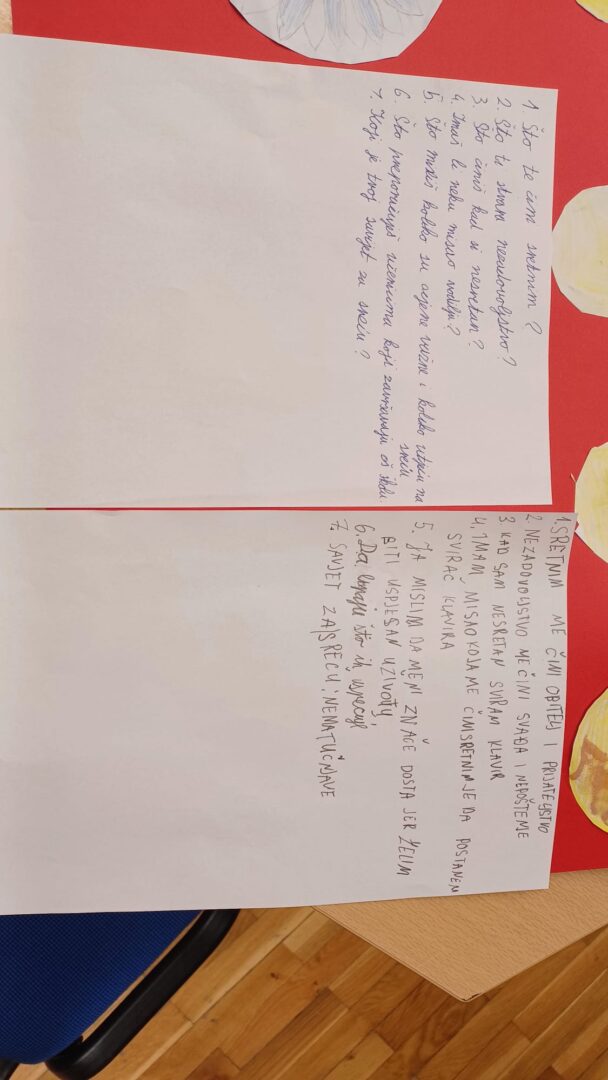 1. Što te čini sretnim?
2. Što ti stvara nezadovoljstvo?
3. Što činiš kad si nesretan?
4. Imaš li neku misao vodilju?
5. Što misliš koliko su ocjene važne i koliko utječu na
sreću
6. Što preporučuješ učenicima koji završavaju oš školu
7. Koji je tvoj savjet za sreću?
1. SRETNIM ME ČINI OBITELJ I PRIJATELJSTVO
2. NEZADOVOLJSTVO ME ČINI SVAĐA I NEPOŠTENJE
3. KAD SAM NESRETAN SVIRAM KLAVIR
4. IMAM MISAO KOJA ME ČINI SRETNIM JE DA POSTANEM
SVIRAČ KLAVIRA
5. JA MISLIM DA MENI ZNAČE DOSTA JER ŽELIM
BITI USPJEŠAN U ŽIVOTU,
6. Da što ih usrećuje
7. SAVJET ZA SREĆU: NEMA TUČNJAVE